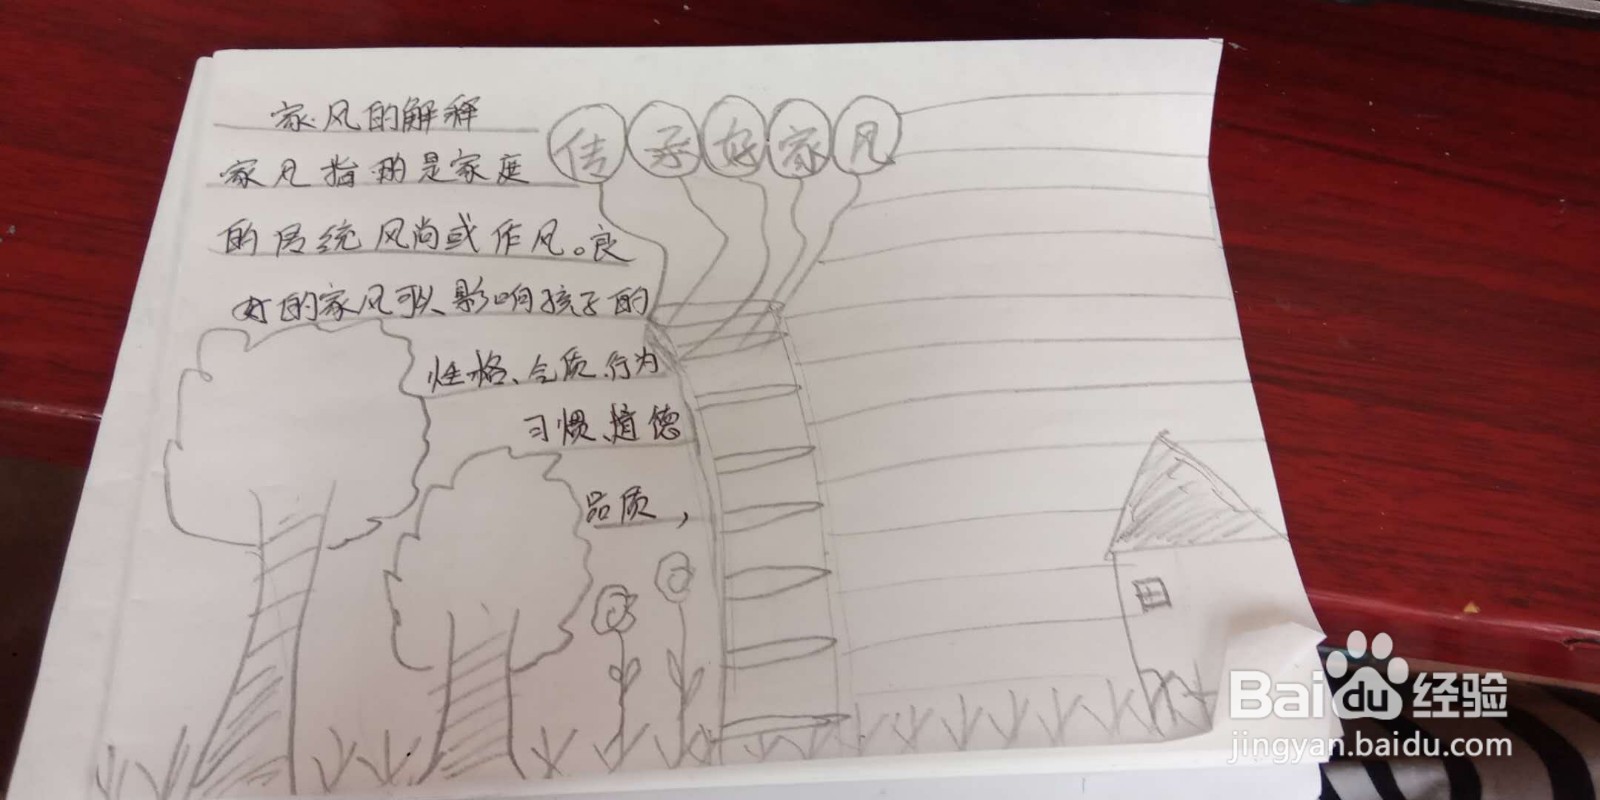 家风的解释
传承好家风
家风指的是家庭
的传统风尚或作风。良
好的家风可以影响孩子的
性格、气质、行为
习惯、道德
品质，
Baidu经验
jingyan.baidu.com